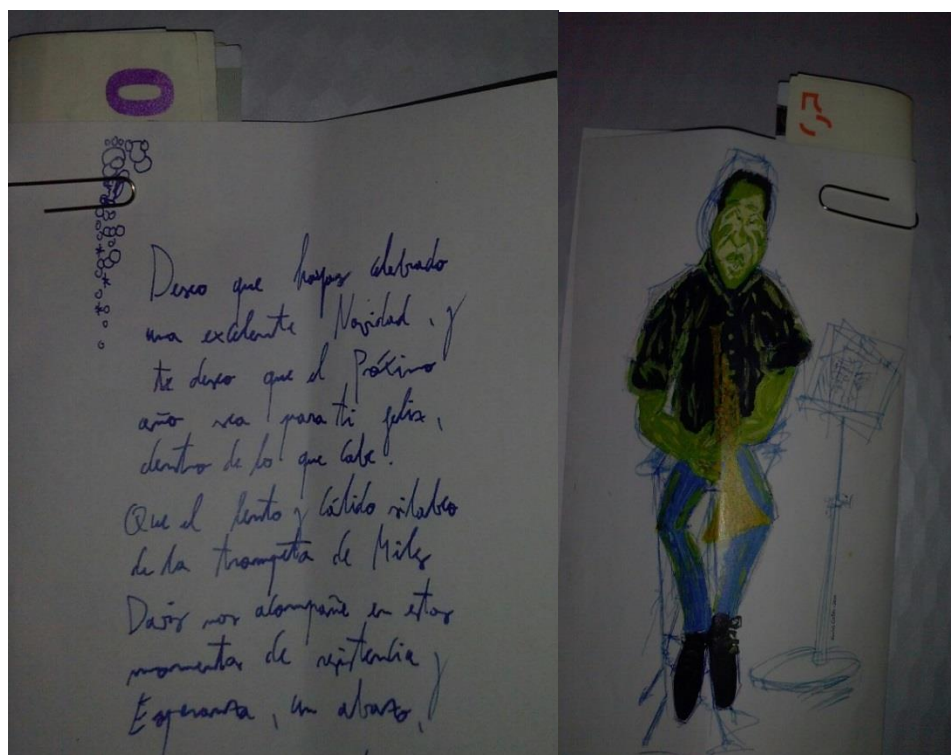 0
Deseo que hayas celebrado
una excelente Navidad, y
te deseo que el Próximo
año sea para ti feliz,
dentro de lo que cabe.
Que el lento y cálido silabeo
de la trompeta de Miles
Davis nos acompañe en estos
momentos de resistencia y
Esperanza, un abrazo,
5